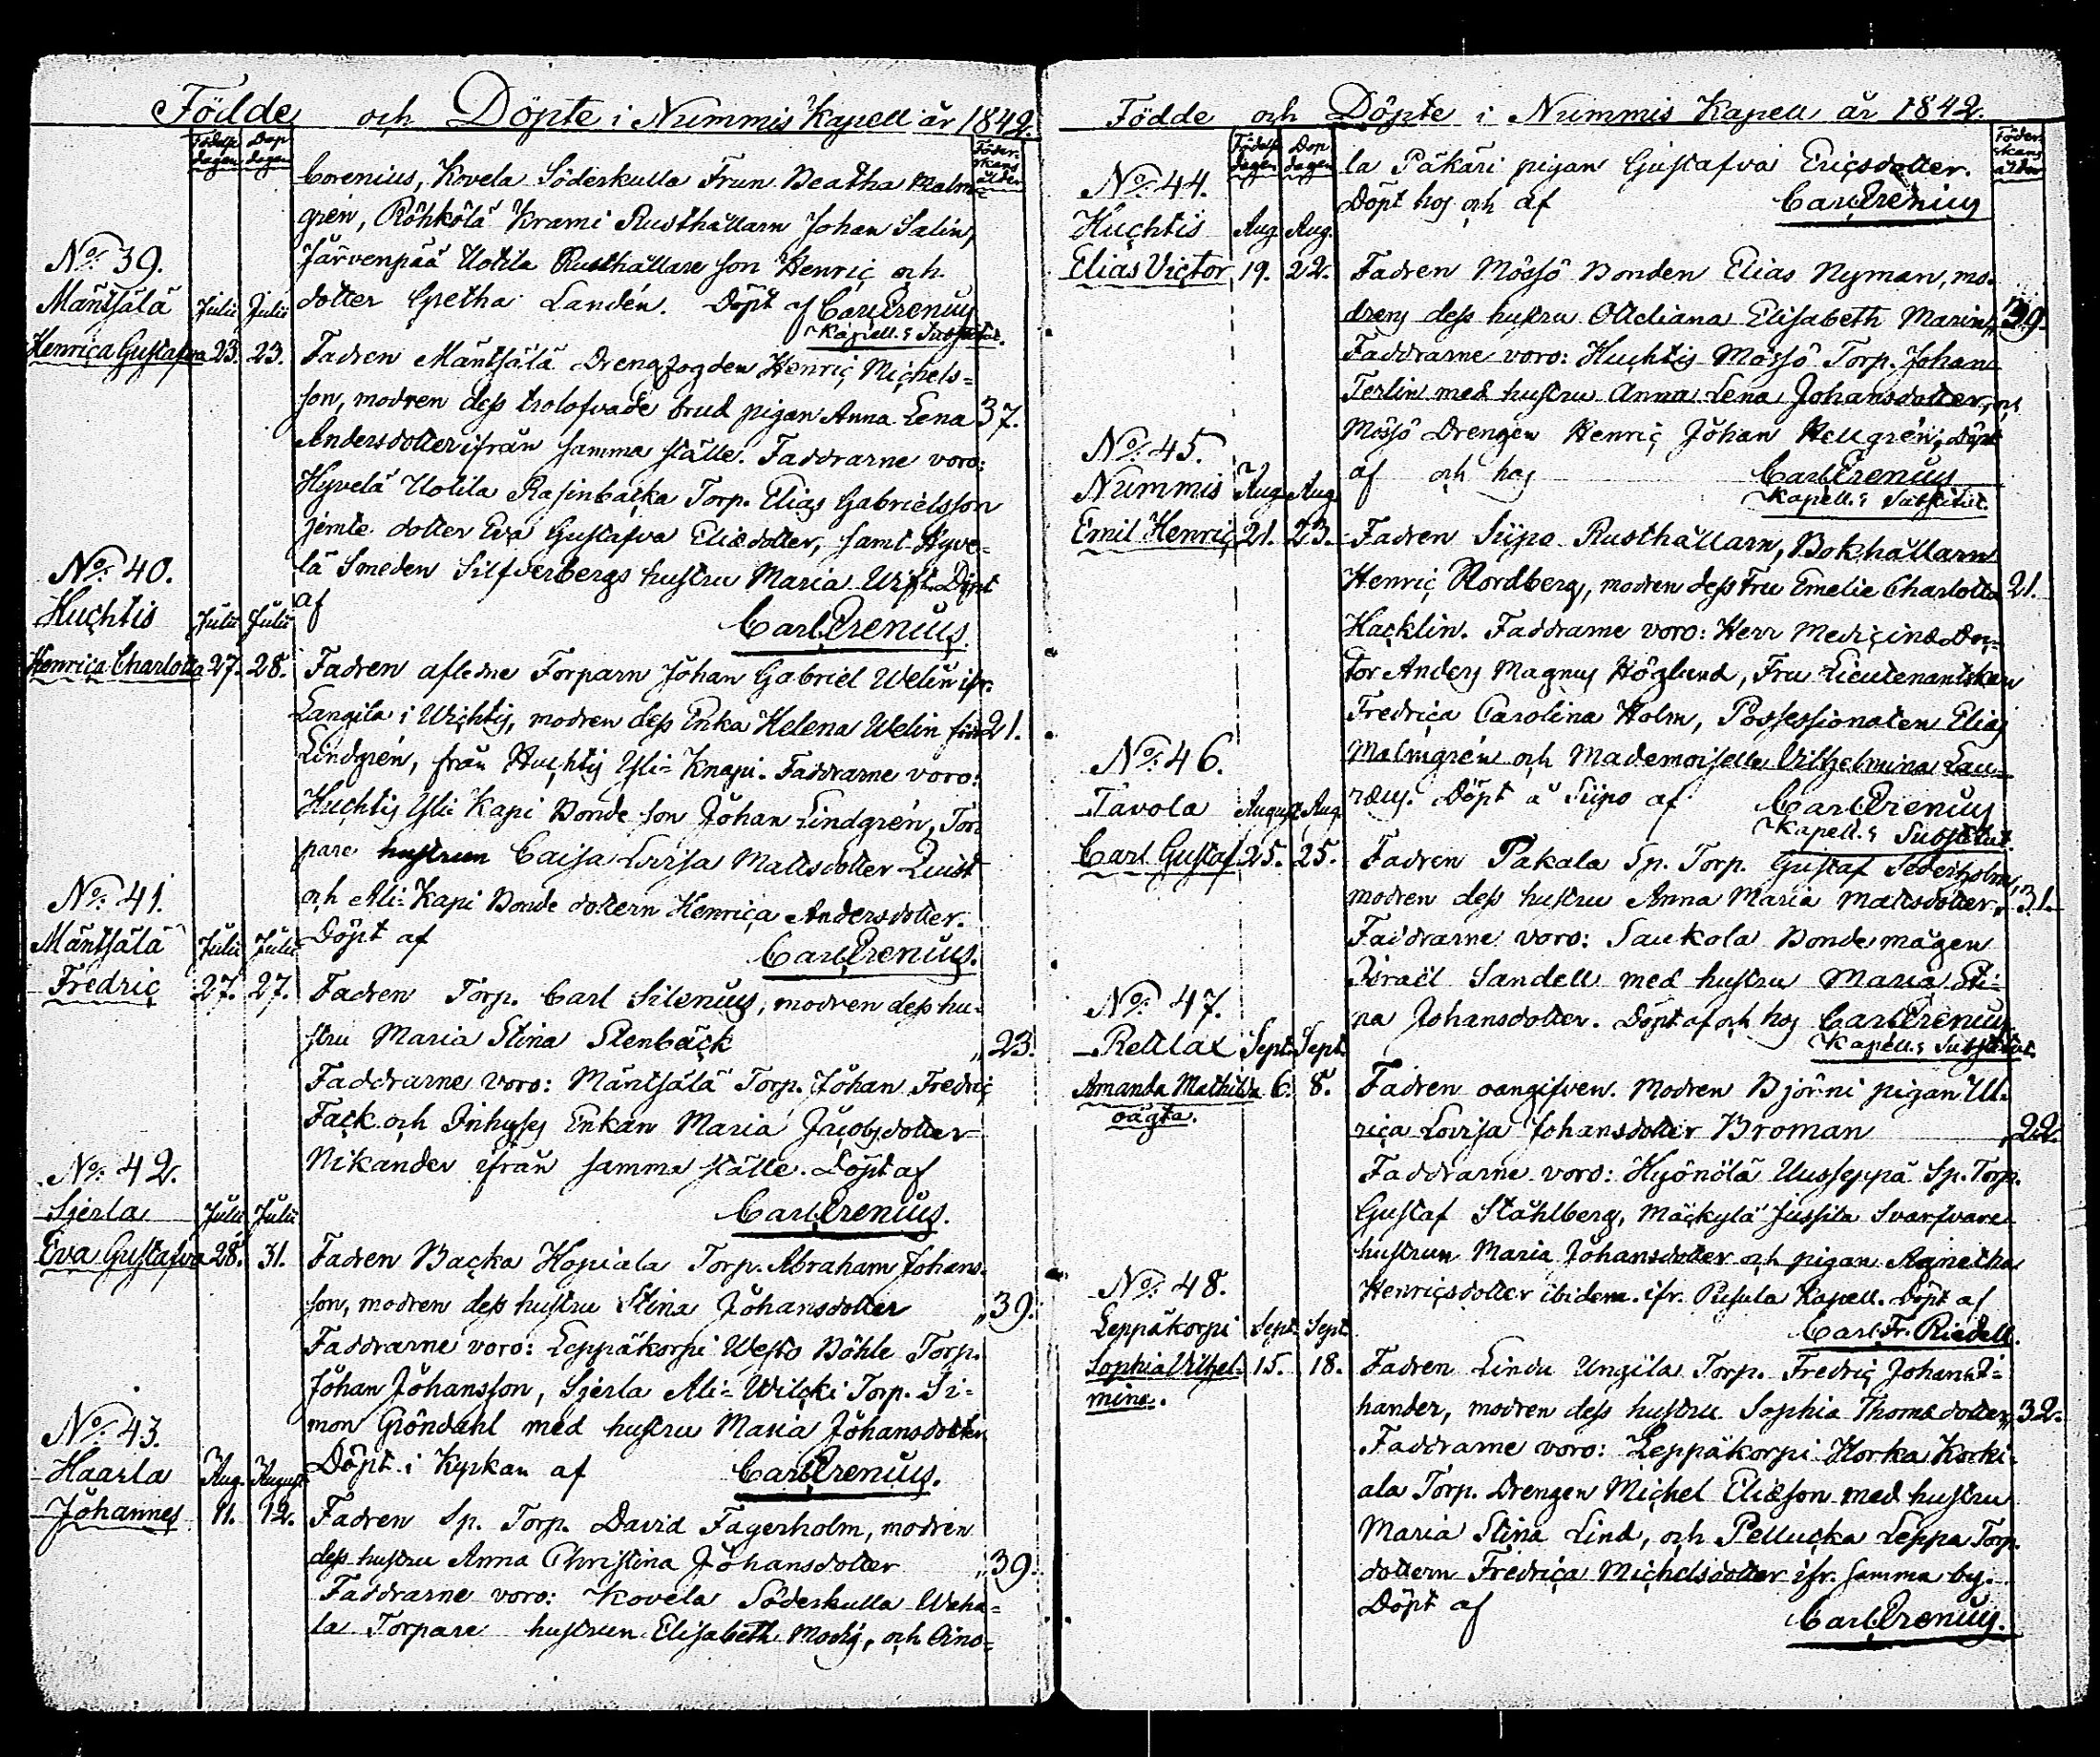 Födde och Döpte i Nummis Kapell år 1842.
Födelse dagen Dop dagen Föder- skans ålder
Corenius, Kovela Söderskulla Frun Beatha Malm-
grén, Röhkölä Krami Rusthållarn Johan Salin,
No: 39. Järvenpää Uotila Rusthållare son Henric och
Mäntsälä Julii Julii dotter Gretha Landén. Döpt af Carl Orenius
Kapell:s Substitut.
Henrica Gustafva 23. 23. Fadren Mäntsälä Drengfogden Henric Michels-
son, modren dess trolofvade brud pigan Anna Lena 37.
Andersdotter ifrån samma ställe. Faddrarne voro:
Hyvelä Uotila Rasinbacka Torp. Elias Gabrielsson
jemte dotter Eva Gustafva Eliædotter, samt Hyve-
No: 40. lä Smeden Silfverbergs hustru Maria Wift. Döpt
Huchtis Julii Julii af Carl Orenius.
Henrica Charlotta 27. 28. Fadren afledne Torparn Johan Gabriel Welin ifr.
Langila i Wichtis, modren dess Enka Helena Welin född 21.
Lindgrén, från Huchtis Yli-Knapi. Faddrarne voro:
Huchtis Yli Kapi Bonde son Johan Lindgrén, Tor-
pare hustrun Caisa Lovisa Mattsdotter Quist
No: 41. och Ali-Kapi Bonde dottern Henrica Andersdotter.
Mäntsälä Julii Julii Döpt af Carl Orenius.
Fredric 27. 27. Fadren Torp. Carl Silenius, modren dess hu-
stru Maria Stina Stenbäck „ 23.
Faddrarne voro: Mäntsälä Torp. Johan Fredric
Fack och Inhyses Enkan Maria Jacobsdotter
No: 42. Nikander ifrån samma ställe. Döpt af
Sjerla Julii Julii Carl Orenius.
Eva Gustafva 28. 31. Fadren Backa Hopiala Torp. Abraham Johans-
son, modren dess hustru Stina Johansdotter „ 39.
Faddrarne voro: Leppäkorpi Westo Böhle Torp.
Johan Johansson, Sjerla Ali-Wilcki Torp. Si-
No: 43. mon Gröndahl med hustru Maria Johansdotter
Haarla Aug. August Döpt i Kyrkan af Carl Orenius.
Johannes 11. 12. Fadren Sp. Torp. David Fagerholm, modren
dess hustru Anna Christina Johansdotter „ 39.
Faddrarne voro: Kovela Söderkulla Waha-
la Torpare hustrun Elisabeth Mody, och Oino-
Födde och Döpte i Nummis Kapell år 1842.
Födelse dagen Dop dagen Föder- skans ålder
No: 44. la Päkäri pigan Gustafva Ericsdotter.
Huchtis Aug. Aug. Döpt hos och af Carl Orenius
Elias Victor 19. 22. Fadren Mössö Bonden Elias Nyman, mo-
drens dess hustru Ottiliana Elisabeth Marin „ 39.
Faddrarne voro: Huchtis Mössö Torp. Johan
Terlin med hustru Anna Lena Johansdotter, och
No: 45. Mössö Drengen Henric Johan Hellgrén; Döpt
Nummis Aug. Aug. af och hos Carl Orenius
Kapell:s Substitut.
Emil Henric 21. 23. Fadren Siipo Rusthållarn, Bokhållarn
Henric Nordberg, modren dess Fru Emelie Charlotta 21.
Hacklin. Faddrarne voro: Herr Medicinæ Doc-
tor Anders Magnus Höglund, Fru Lieutenantskan
Fredrica Carolina Holm, Possessionaten Elias
No: 46. Malmgrén och Mademoiselle Vilhelmina Lau-
Tavola August Aug. ræus. Döpt å Siipo af Carl Orenius
Kapell:s Substitut.
Carl Gustaf 25. 25. Fadren Pakala Sp. Torp. Gustaf Sederholm,
modren dess hustru Anna Maria Mattsdotter „ 31.
Faddrarne voro: Saukola Bonde mågen
Israël Sandell med hustru Maria Sti-
No: 47. na Johansdotter. Döpt af och hos Carl Orenius
Kapell:s Substitut.
Retlax Sept. Sept.
Amanda Mathilda 6. 8. Fadren oangifven. Modren Björni pigan Ul-
oägta. rica Lovisa Johansdotter Broman „ 22.
Faddrarne voro: Hyönölä Uusseppä Sp. Torp.
Gustaf Ståhlberg, Mäckylä Jussila Svarfvare
hustrun Maria Johansdotter och pigan Agnetha
No: 48. Henricsdotter ibidem. ifr. Pusula Kapell. Döpt af
Leppäkorpi Sept. Sept. Carl Fr. Riedell.
Sophia Vilhel- 15. 18. Fadren Lindu Ungila Torp. Fredric Johan Ti-
mina. hander, modren dess hustru Sophia Thomædotter „ 32.
Faddrarne voro: Leppäkorpi Horka Korki-
ala Torp. Drengen Michel Eliæson med hustru
Maria Stina Lind, och Pellucka Leppa Torp.
dottern Fredrica Michelsdotter ifr. samma by.
Döpt af Carl Orenius.